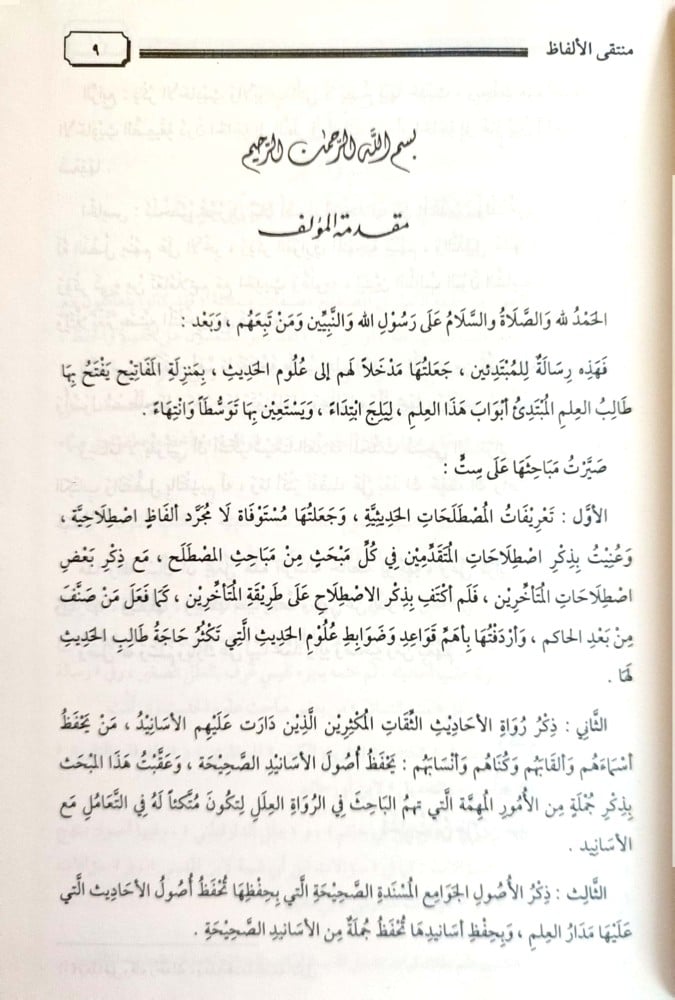 منتقى الألفاظ
٩
بسم الله الرحمن الرحيم
مقدمة المؤلف
الحَمْدُ لله وَالصَّلَاةُ والسَّلَامُ عَلَى رَسُولِ الله والنَّبِيِّين وَمَنْ تَبِعَهُم ، وَبَعْد :
فَهَذِه رِسَالَةٌ لِلمُبْتَدِئين ، جَعَلتُهَا مَدْخَلاً لَهم إلى عُلُوم الحَدِيث ، بِمَنزِلَةِ المَفَاتِيح يَفْتَحُ بِهَا
طَالِبُ العِلمِ المُبْتَدِئُ أبْوَابَ هَذَا العِلمِ ، لِيَلِجَ ابْتِدَاءً ، وَيَسْتَعِين بِهَا تَوَسُّطَاً وَانْتِهَاءً .
صَيَّرْتُ مَبَاحِثَهَا عَلَى سِتٍّ :
الأوَّل : تَعْرِيفَاتُ المُصْطَلَحَاتِ الحَدِيثِيَّةِ ، وَجَعَلتُهَا مُسْتَوْفَاة لَا مُجَرَّد ألفَاظٍ اصْطِلَاحِيَّة ،
وَعُنِيْتُ بِذِكْرِ اصْطِلَاحَاتِ المُتَقَدِّمِين فِي كُلِّ مَبْحَثٍ مِنْ مَبَاحِثِ المصْطَلَحِ ، مَع ذِكْرِ بَعْضِ
اصْطِلَاحَاتِ المُتَأخِّرِين ، فَلَم أكْتَفِ بِذِكْر الاصْطِلَاح عَلَى طَرِيقَةِ المُتَأخِّرِين ، كَمَا فَعَلَ مَنْ صَنَّفَ
مِنْ بَعْدِ الحاكم ، وَأرْدَفْتُهَا بِأهَمِّ قَوَاعِدِ وَضَوَابِطِ عُلُوْمِ الحَدِيثِ الَّتِي تَكْثُرُ حَاجَةُ طَالِبِ الحَدِيثِ
لَهَا .
الثَّانِي : ذِكْرُ رُوَاةِ الأحَادِيْثِ الثِّقَاتِ المُكْثِرِين الَّذِيْن دَارَت عَلَيْهِم الأسَانِيْدُ ، مَنْ يَحْفَظُ
أسْمَاءَهُم وَألقَابَهُم وَكُنَاهُم وَأنْسَابَهُم : يَحْفَظُ أُصُولَ الأسَانِيْدِ الصَّحِيْحَة ، وَعَقَّبْتُ هَذَا المبْحَث
بِذِكْرِ جُمْلَةٍ مِن الأُمُورِ المُهِمَّة الَّتِي تَهمُّ البَاحِثَ فِي الرُّوَاةِ العِلَلِ لِتكُونَ مُتَّكئاً لَهُ فِي التَّعَامُلِ مَع
الأسَانِيد .
الثَّالِث : ذِكْرُ الأُصُولِ الجَوَامِعِ المُسْنَدةِ الصَّحِيْحَةِ الَّتِي بِحِفْظِهَا تُحْفَظُ أُصُولُ الأحَادِيث الَّتي
عَلَيْهَا مَدَارُ العِلمِ ، وَبِحِفْظِ أسَانِيدِهَا تُحْفَظُ جُملَةٌ مِن الأسَانِيدِ الصَّحِيْحَةِ .